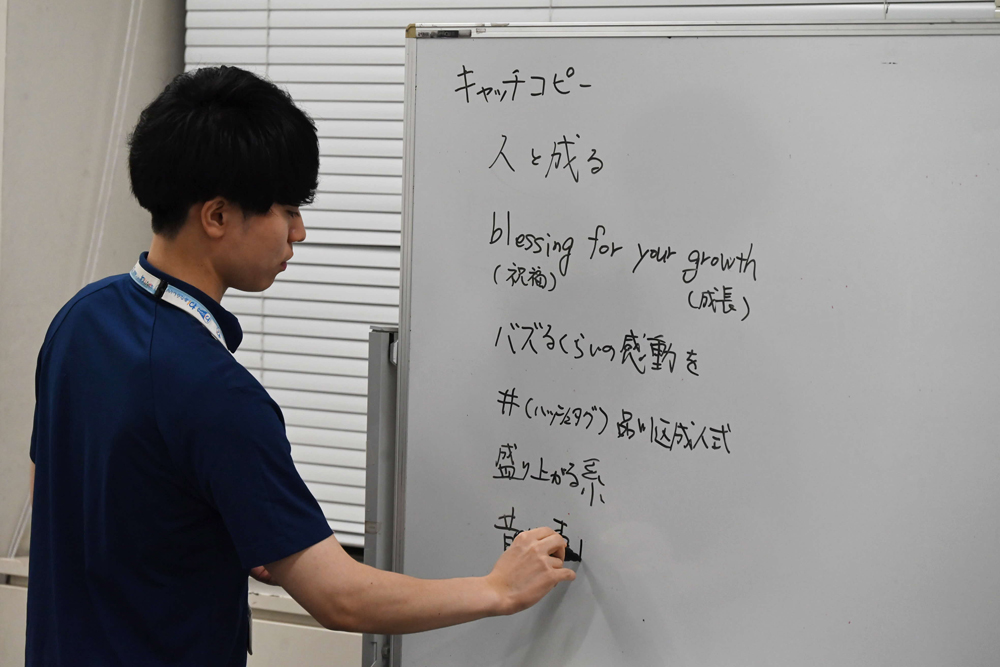 キャッチコピー
人と成る
blessing for your growth
(祝福) (成長)
バズるくらいの感動を
#(ハッシュタグ)品川区成人式
盛り上がる系